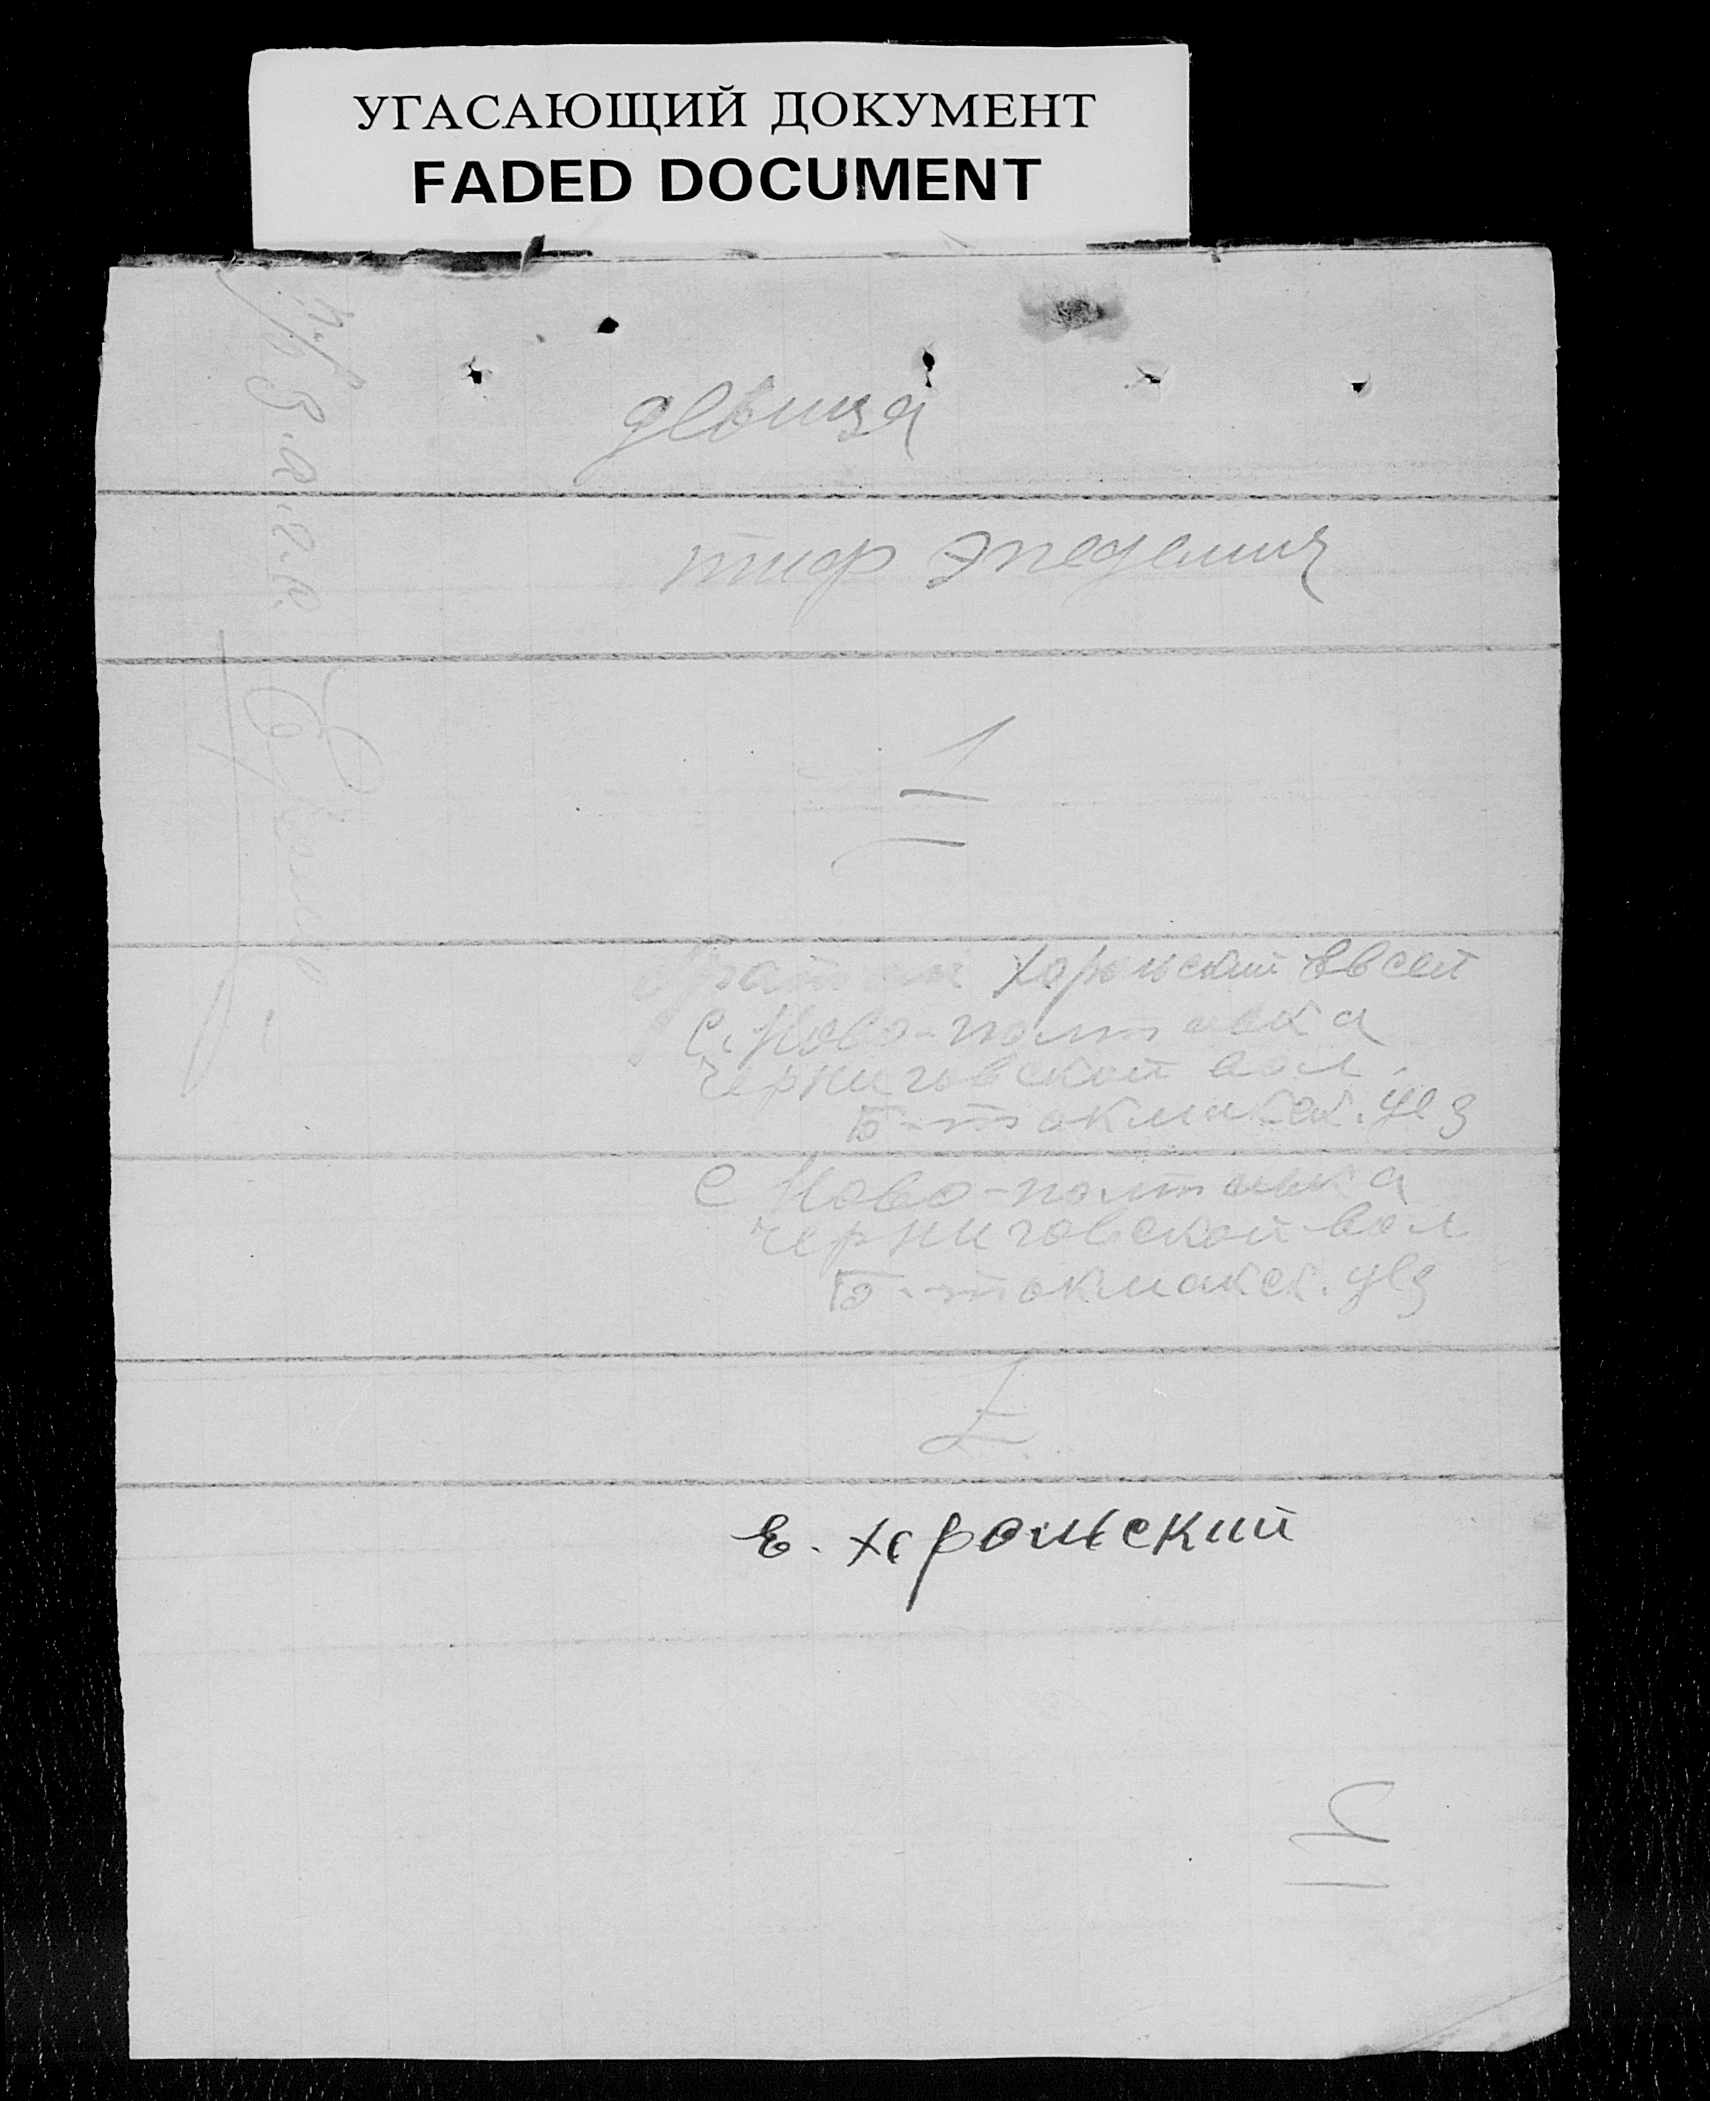 УГАСАЮЩИЙ ДОКУМЕНТ
FADED DOCUMENT
девица
тиф эпедемия
1
Хорольский Евсей
с. Ново-полтавка
черниговской вол.
Б-токмакск. уез
с Ново-полтавка
черниговской вол
Б-токмакск. уез
Е. Хорольский